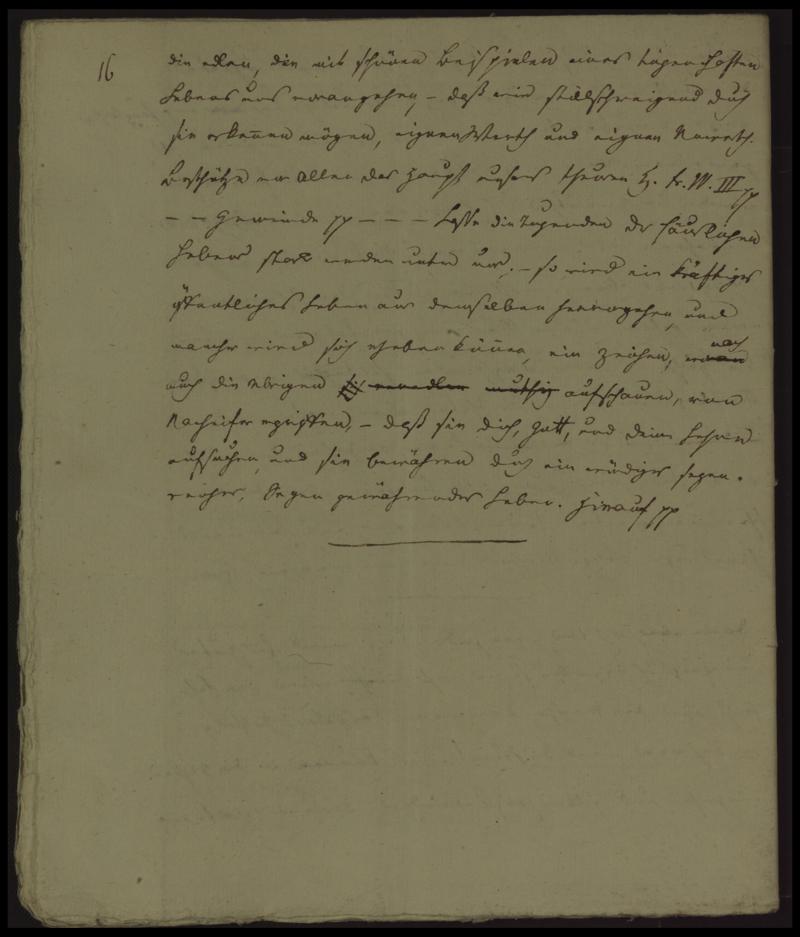 16
die edlen, die mit schönen Beispielen eines tugendhaften
Lebens uns vorangehen, – daß wir stillschweigend durch
sie erkennen mögen, eignen Werth und eignen Unwerth.
Beschütze vor allen das Haupt unsers theuren H. Fr. W. III pp
– – Gemeinde pp – – – Lasse die Tugenden des häuslichen
Lebens stark werden unter uns, – so wird ein kräftiges
öffentliches Leben aus demselben hervorgehen, und
mancher wird sich erheben können, ein Zeichen, nach
auch die übrigen muthig aufschauen, von
Nacheifer ergriffen, – daß sie dich, Gott, und deine Lehren
aufsuchen, und sie bewähren durch ein würdiges segen-
reiches, Segen gewährendes Leben. Hinauf pp